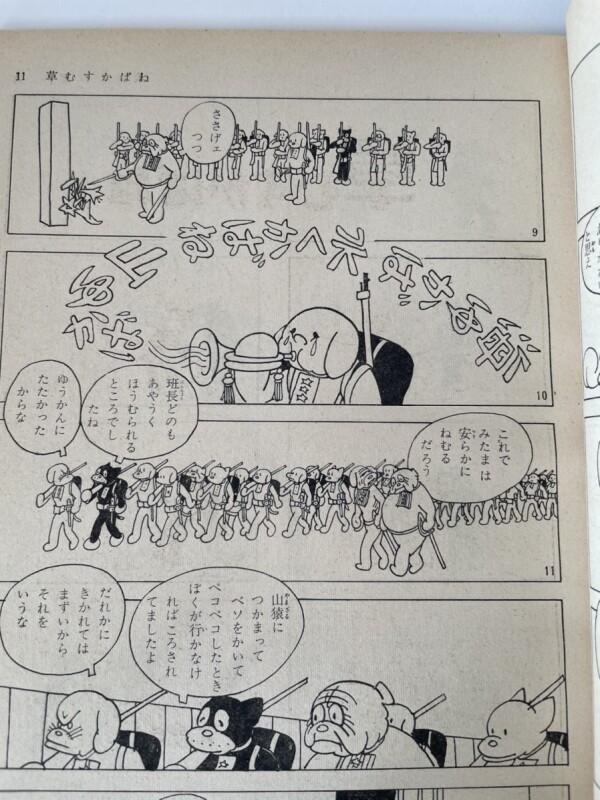 11 草むすかばね
ささげェ
つつ
9
海ゆかば
水くかばね
山ゆかば
10
これで
みたまは
安らかに
ねむる
だろう
班長どのも
あやうく
ほうむられる
ところでし
たね
ゆうかんに
たたかった
からな
11
山猿に
つかまって
ベソをかいて
ペコペコしたとき
ぼくが行かなけ
ればころされ
てましたよ
だれかに
きかれては
まずいから
それを
いうな